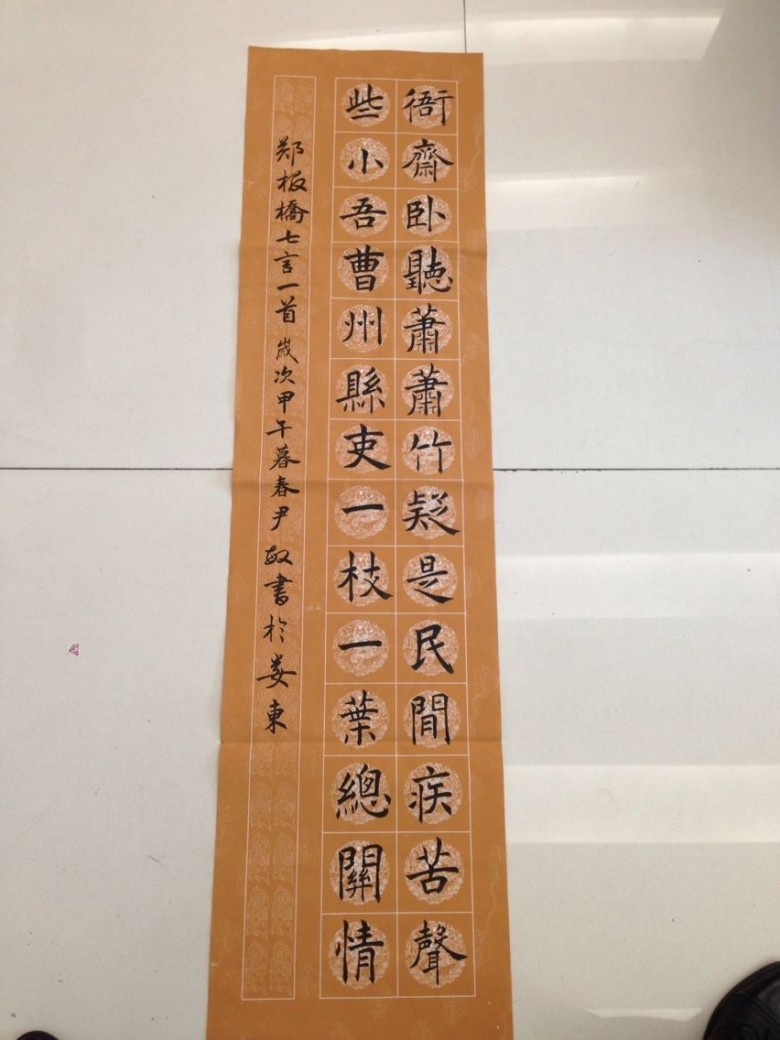 衙齋卧聽蕭蕭竹疑是民間疾苦聲
些小吾曹州縣吏一枝一葉總關情
郑板橋七言一首歲次甲午暮春尹政書於婁東